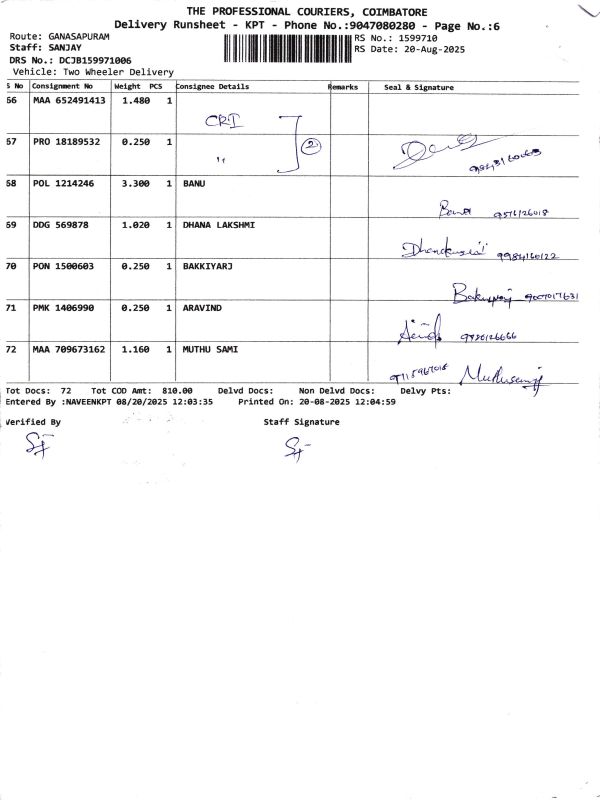 THE PROFESSIONAL COURIERS, COIMBATORE
Delivery Runsheet - KPT - Phone No.:9047080280 - Page No.:6
Route: GANASAPURAM
RS No.: 1599710
Staff: SANJAY
RS Date: 20-Aug-2025
DRS No.: DCJB159971006
Vehicle: Two Wheeler Delivery
S No Consignment No Weight PCS Consignee Details Remarks Seal & Signature
66 MAA 652491413 1.480 1
CRI
2
67 PRO 18189532 0.250 1 "
68 POL 1214246 3.300 1 BANU
Banu
69 DDG 569878 1.020 1 DHANA LAKSHMI
9984160122
70 PON 1500603 0.250 1 BAKKIYARJ
71 PMK 1406990 0.250 1 ARAVIND
72 MAA 709673162 1.160 1 MUTHU SAMI
Muthusamy
Tot Docs: 72 Tot COD Amt: 810.00 Delvd Docs: Non Delvd Docs: Delvy Pts:
Entered By :NAVEENKPT 08/20/2025 12:03:35 Printed On: 20-08-2025 12:04:59
Verified By Staff Signature